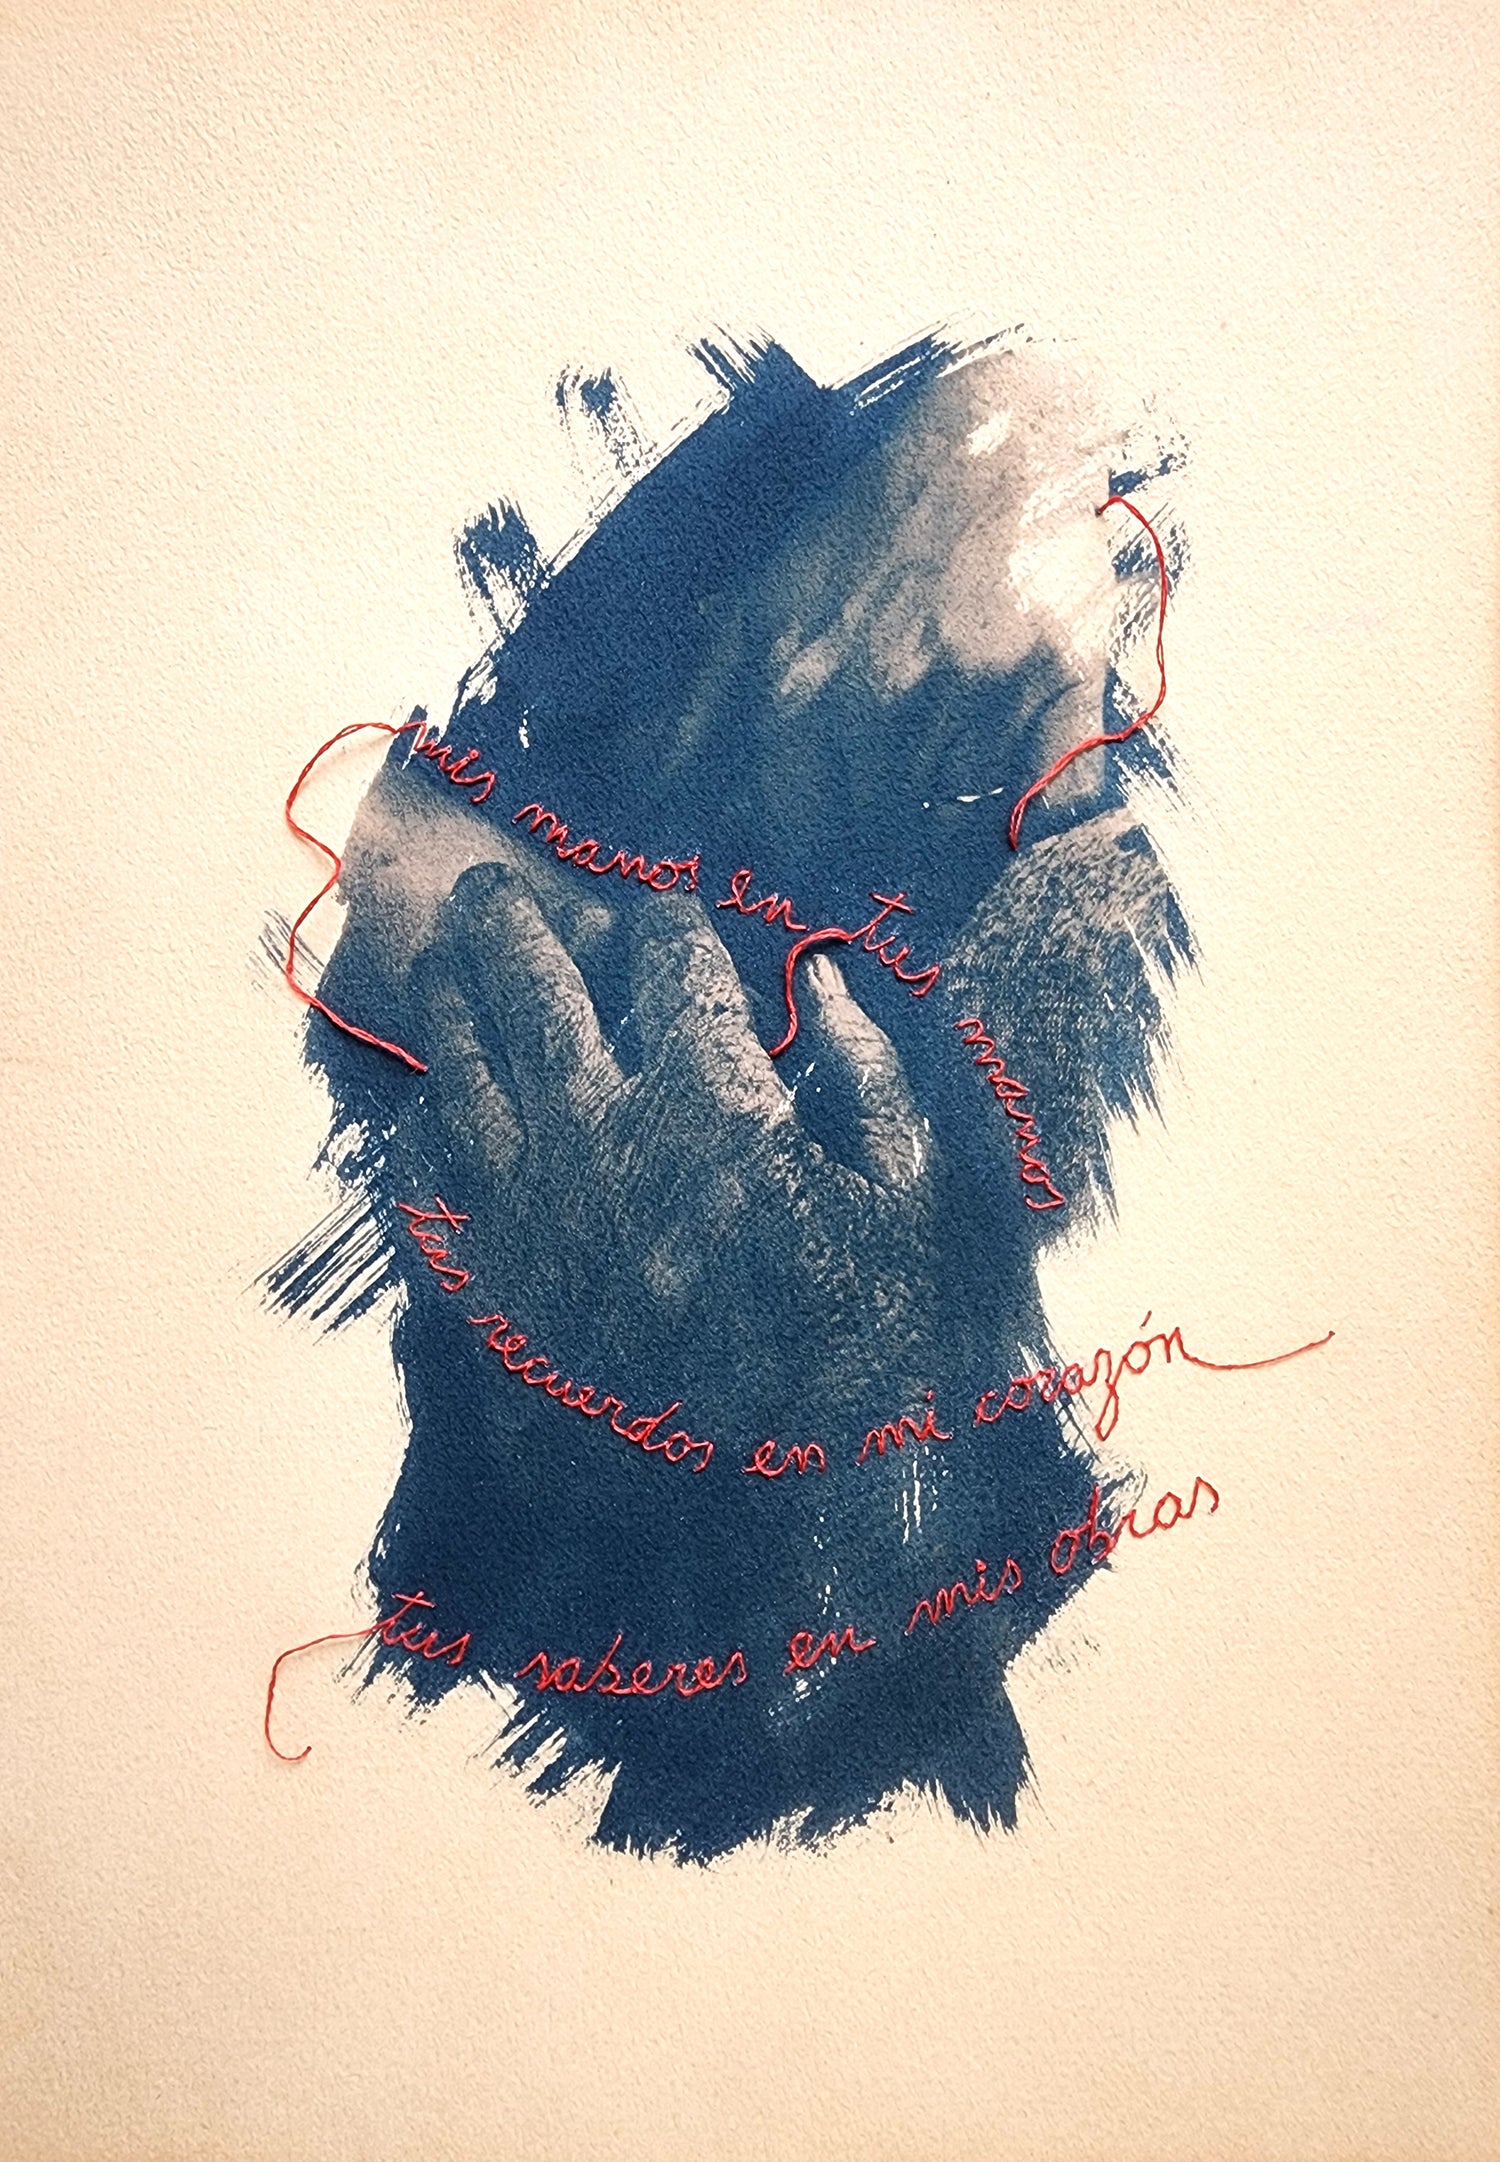 mis manos en tus manos
tus recuerdos en mi corazón
tus saberes en mis obras